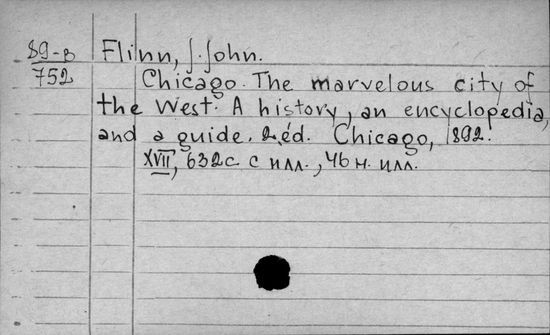 89-В Flinn, J. John.
752 Chicago. The marvelous city of
the West. A history, an encyclopedia,
and a guide. 2.éd. Chicago, 1892.
XVII, 632с с илл., 46 н. илл.